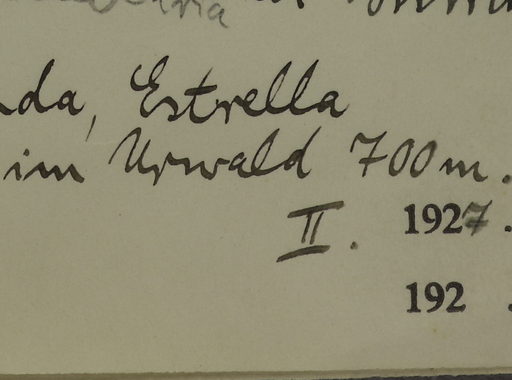 nda, Estrella
im Urwald 700 m.
II. 1927.
192 .